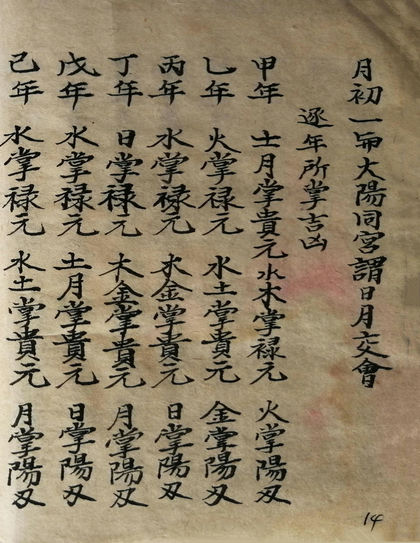 月初一大陽同宮謂日月交會
逐年所掌吉凶
甲年 土月掌貴元 水木掌禄元 火掌陽刄
乙年 火掌禄元 水土掌貴元 金掌陽刄
丙年 水掌禄元 木金掌貴元 日掌陽刄
丁年 日掌禄元 木金掌貴元 月掌陽刄
戊年 水掌禄元 土月掌貴元 日掌陽刄
己年 水掌禄元 水土掌貴元 月掌陽刄
14